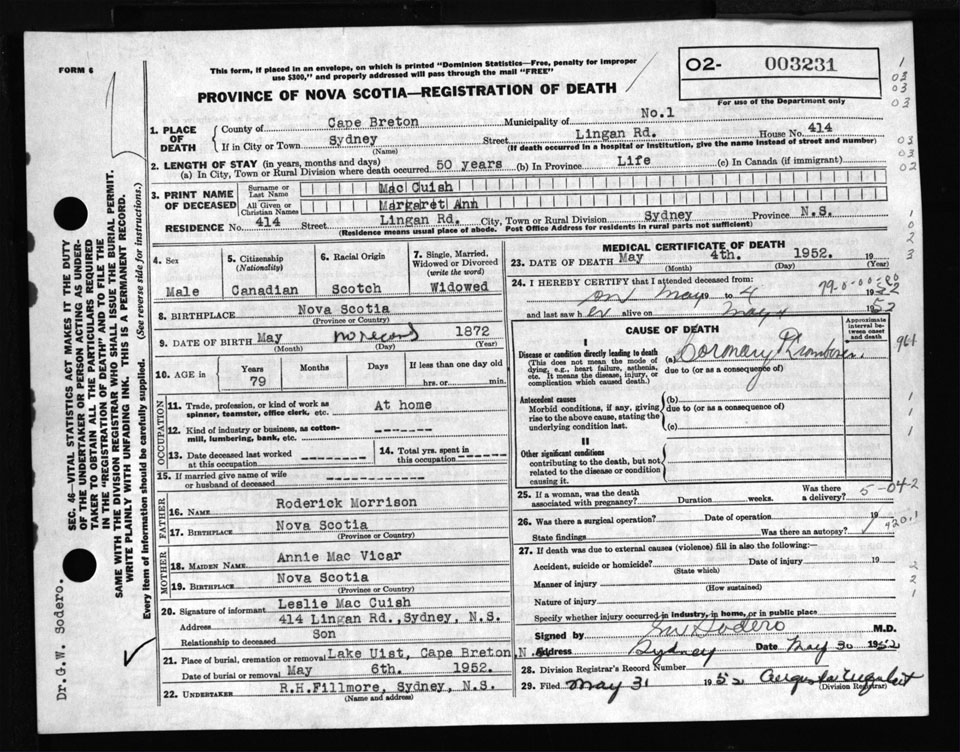 FORM 6
This form, if placed in an envelope, on which is printed "Dominion Statistics—Free, penalty for improper
use $300," and properly addressed will pass through the mail "FREE"
PROVINCE OF NOVA SCOTIA—REGISTRATION OF DEATH
02- 003231
For use of the Department only
1. PLACE OF DEATH
County of Cape Breton Municipality of No.1
If in City or Town Sydney (Name) Street Lingan Rd. House No. 414
(If death occurred in a hospital or institution, give the name instead of street and number)
2. LENGTH OF STAY (in years, months and days)
(a) In City, Town or Rural Division where death occurred 50 years (b) In Province Life (c) In Canada (if immigrant)
3. PRINT NAME OF DECEASED
Surname or Last Name Mac Cuish
All Given or Christian Names Margaret Ann
RESIDENCE No. 414 Street Lingan Rd. City, Town or Rural Division Sydney Province N.S.
(Residence means usual place of abode. Post Office Address for residents in rural parts not sufficient)
4. Sex Male
5. Citizenship (Nationality) Canadian
6. Racial Origin Scotch
7. Single, Married, Widowed or Divorced (write the word) Widowed
8. BIRTHPLACE Nova Scotia
(Province or Country)
9. DATE OF BIRTH May no record 1872
(Month) (Day) (Year)
10. AGE in Years 79 Months Days If less than one day old
hrs. or min.
OCCUPATION
11. Trade, profession, or kind of work as
spinner, teamster, office clerk, etc. At home
12. Kind of industry or business, as cotton-
mill, lumbering, bank, etc. ------
13. Date deceased last worked
at this occupation ------
14. Total yrs. spent in
this occupation ------
15. If married give name of wife
or husband of deceased
FATHER
16. NAME Roderick Morrison
17. BIRTHPLACE Nova Scotia
(Province or Country)
MOTHER
18. MAIDEN NAME Annie Mac Vicar
19. BIRTHPLACE Nova Scotia
(Province or Country)
20. Signature of informant Leslie Mac Cuish
Address 414 Lingan Rd.,Sydney, N.S.
Relationship to deceased Son
21. Place of burial, cremation or removal Lake Uist, Cape Breton, N.S.
Date of burial or removal May 6th. 1952.
22. UNDERTAKER R.H.Fillmore, Sydney, N.S.
(Name and address)
MEDICAL CERTIFICATE OF DEATH
23. DATE OF DEATH May 4th. 1952. 19
(Month) (Day) (Year)
24. I HEREBY CERTIFY that I attended deceased from:
on May 19 to 4 19 52
and last saw her alive on May 4 19 52
CAUSE OF DEATH
Approximate interval between onset and death
I
Disease or condition directly leading to death
(This does not mean the mode of
dying, e.g., heart failure, asthenia,
etc. It means the disease, injury, or
complication which caused death.)
(a) Coronary Thrombosis.
due to (or as a consequence of)
Antecedent causes
Morbid conditions, if any, giving
rise to the above cause, stating the
underlying condition last.
(b)
due to (or as a consequence of)
(c)
II
Other significant conditions
contributing to the death, but not
related to the disease or condition
causing it.
25. If a woman, was the death
associated with pregnancy? Duration weeks. Was there
a delivery? 5-04-2
26. Was there a surgical operation? Date of operation 19
State findings Was there an autopsy? 420.1
27. If death was due to external causes (violence) fill in also the following:
Accident, suicide or homicide? Date of injury 19
(State which)
Manner of injury
(How sustained)
Nature of injury
Specify whether injury occurred in industry, in home, or in public place
Signed by GW Sodero M.D.
Address Sydney Date May 30 1952
28. Division Registrar's Record Number
29. Filed May 31 1952
(Division Registrar)
SEC. 46—VITAL STATISTICS ACT MAKES IT THE DUTY
OF THE UNDERTAKER OR PERSON ACTING AS UNDER-
TAKER TO OBTAIN ALL THE PARTICULARS REQUIRED
IN THE "REGISTRATION OF DEATH" AND TO FILE THE
SAME WITH THE DIVISION REGISTRAR WHO SHALL ISSUE THE BURIAL PERMIT.
WRITE PLAINLY WITH UNFADING INK. THIS IS A PERMANENT RECORD.
Every item of information should be carefully supplied. (See reverse side for instructions.)
Dr.G.W. Sodero.